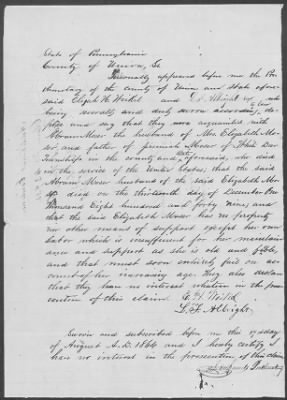 State of Pennsylvania
County of Union, Ss
Personally appeared before me the Pro
thonotary of the county of Union and State afore
said Elijah H. Weikel and L. F. Albright who
being severally and duly sworn according to law, de
pose and say that they were acquainted with
Abram Moser the husband of Mrs. Elizabeth Mo
ser and father of Jeremiah Moser of White Deer
Township in the county and state aforesaid, who died
in the service of the United States, that the said
Abram Moser husband of the said Elizabeth Mo
ser died on the thirteenth day of December One
thousand Eight hundred and forty nine, and
that the said Elizabeth Moser has no property
nor other means of support except her own
labor which is insufficient for her mainten
ance and support as she is old and feeble,
and that must soon entirely fail on ac
count of her increasing age. They also declare
that they have no interest whatever in the prose
cution of this claim.
E. H. Weikel
L. F. Albright
Sworn and subscribed before me this 17 day
of August A.D. 1864 and I hereby certify I
have no interest in the prosecution of this claim